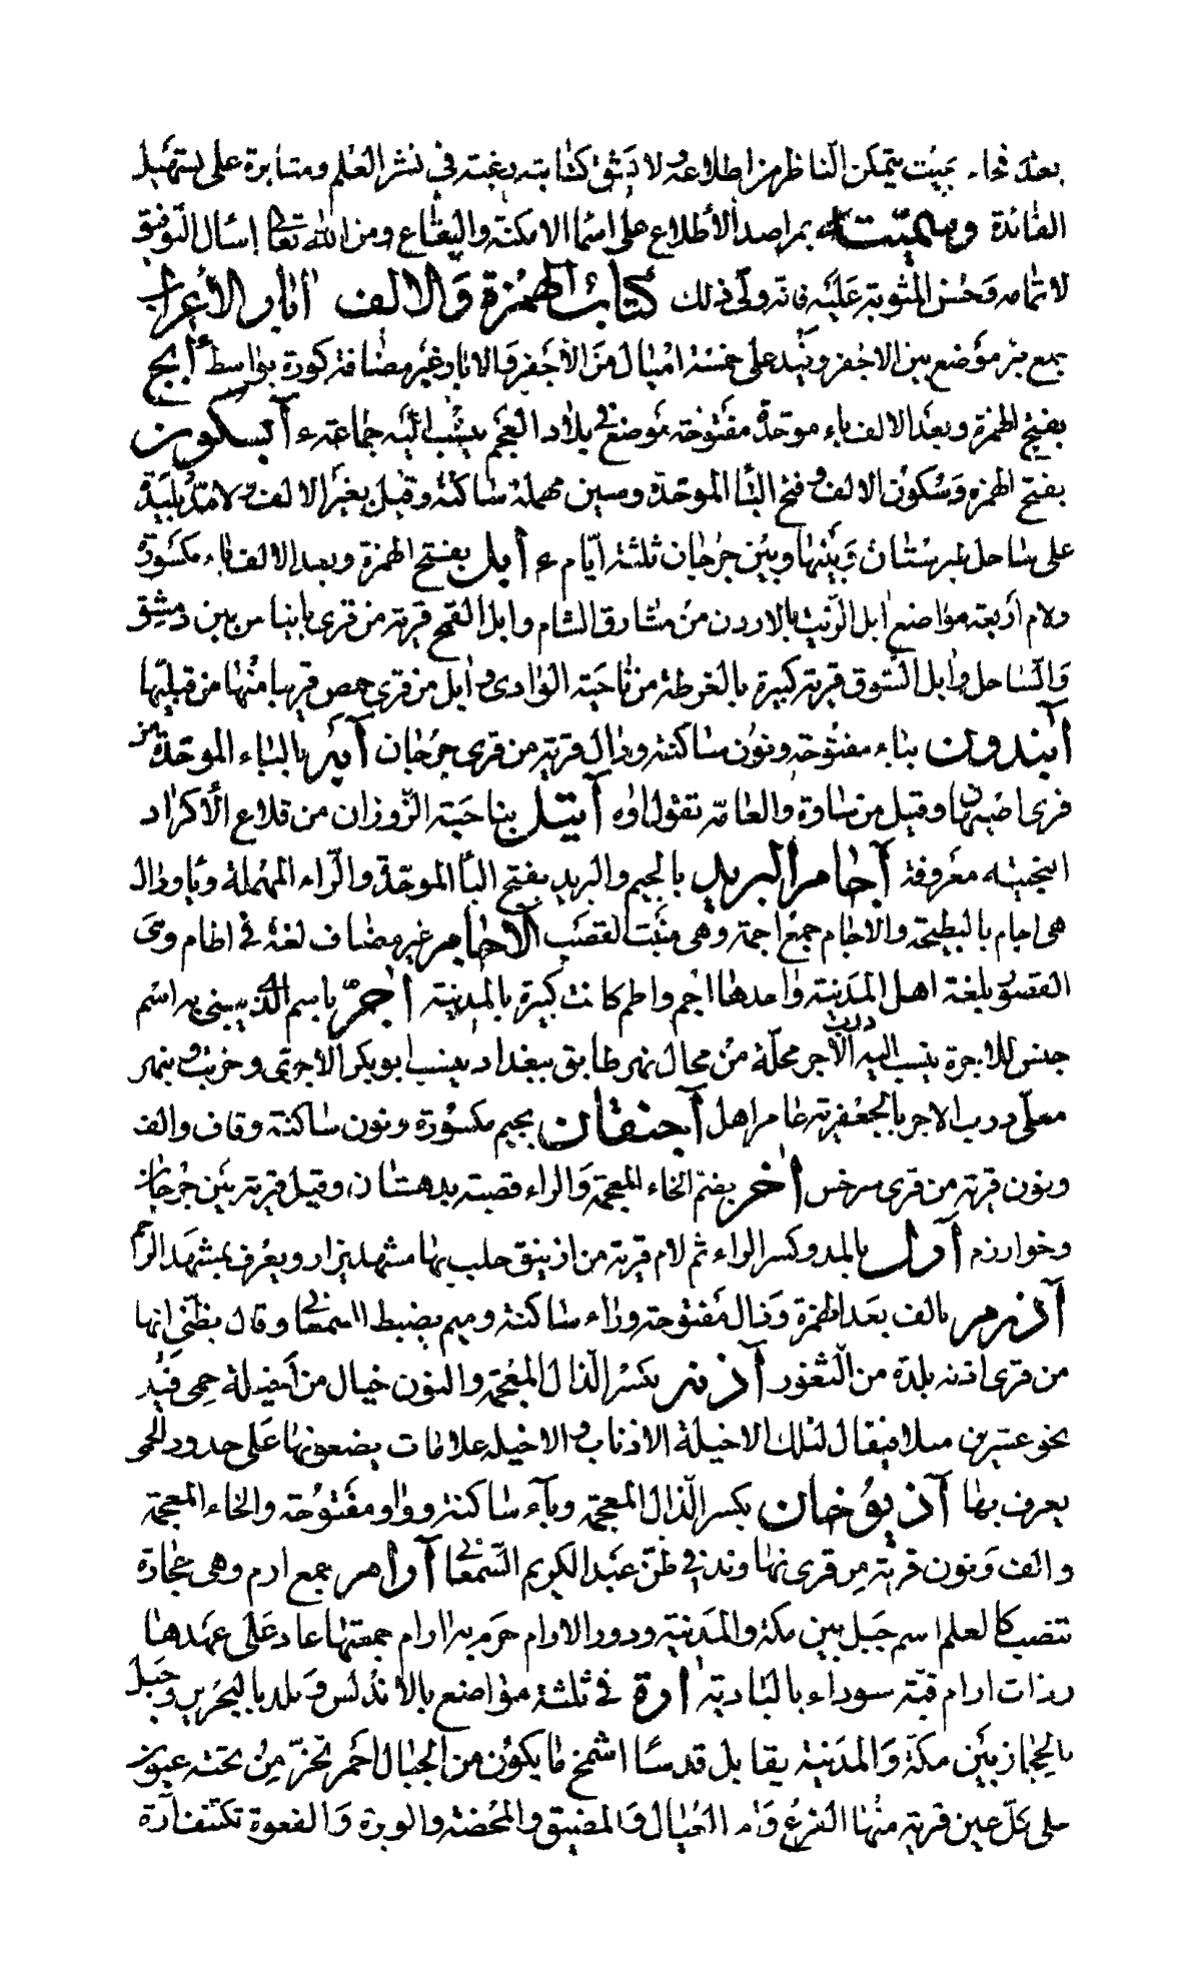 بعدَ فجاء بحيث يتمكن الناظر من اطلاعه ولا تشق كتابته رغبته في نشر العلم ومثابرة على تسهيل
الفائدة وسميّته بمراصد الأطلاع على اسما الامكنة والبقاع ومن الله تعا اسال التوفيق
لاتمامه وحسن المثوبة عليه فانه ولى ذلك كتاب الهمزة والالف اٰبار الأعراب
جمع بئر موضع بين الاجفر وفيد على خمسة اميال من الأجفر والابار وغير مضافة كورة بواسط اٰبج
بفتح الهمزة وبعد الالف باء موحدة مفتوحة موضع في بلاد العجم ينسب اليه جماعة ء آبسكون
بفتح الهمزه وسكون الالف وفتح البا الموحدة وسين مهملة ساكنة وقيل بغير الالف ولامد بليدة
على ساحل طبرستان وبينها وبين جرجان ثلثة ايام ء آبل بفتح الهمزة وبعد الالف باء مكسورة
ولام أربعة مواضع ابل الزيت بالاردن من مشارق الشام وابل القمح قرية من قرى بانياس بين دمشق
والساحل وابل السوق قرية كبيرة بالغوطة من ناحية الوادى وابل من قرى حمص قريبا منها من قبليها
آبندون بباء مفتوحة ونون ساكنة ودال قرية من قرى جرجان آبه بالباء الموحدة من
قرى اصبهان وقيل من ساوة والعامة تقول اوه آتيل بناحية الزوزان من قلاع الاكراد
البختيه معروفة آجام البريد بالجيم والبريد بفتح البا الموحدة والراء المهملة ويا ودال
هى اجام بالبطيحة والاجام جمع اجمة وهى منبت القصب الآجام غير مضاف لغة في اطام وهى
القصور بلغة اهل المدينة واحدها اجم واطم كانت كبيرة بالمدينة اٰجرّ باسم الذى يبنى به اسم
جنس للاجرة ينسب اليه درب الاجر محلة من محال نهر طابق ببغداد ينسب ابو بكر الاجرى وخربت وبنهر
معلى درب الاجر بالجعفرية عامر اهل آجنقان بجيم مكسورة ونون ساكنة وقاف والف
ونون قرية من قرى سرخس اٰخر بضم الخاء المعجمة والراء قصبة بدهستان وقيل قرية بين جرجان
وخوارزم آرل بالمد وكسر الراء ثم لام قرية من حلب بها مشهد يزار ويعرف بمشهد
آذرم بالف بعد الهمزة وذال مفتوحة وراء ساكنة وميم بضبط السمعانى وقال بظنى انها
من قرى اذنه بلدة من الثغور آذنه بكسر الذال المعجمة والنون خيال من أخيلة حمى فيد
نحو عشرين ميلا فيقال لتلك الاخيلة الاذناب والاخيله علامات يضعونها على حدود الحمى
يعرف بها آذيوخان بكسر الذال المعجمة وياء ساكنة وواو مفتوحة والخاء المعجمة
والف ونون قرية من قرى نهاوند في ظن عبد الكريم السمعانى آرام جمع ارم وهى حجارة
تنصب كالعلم اسم جبل بين مكة والمدينة ودور الارام حزم به ارام جمعتها عاد على عهدها
وذات ارام قنة سوداء بالبادية اٰرة في ثلثة مواضع بالاندلس وبلد بالبحرين وجبل
بالحجاز بين مكة والمدينة يقابل قدسا اشمخ ما يكون من الجبال احمر تخرّ من تحته عيون
على كل عين قرية منها الفرع وام العيال والمضيق والمحضة والوبرة والفعوة تكتنف آرة